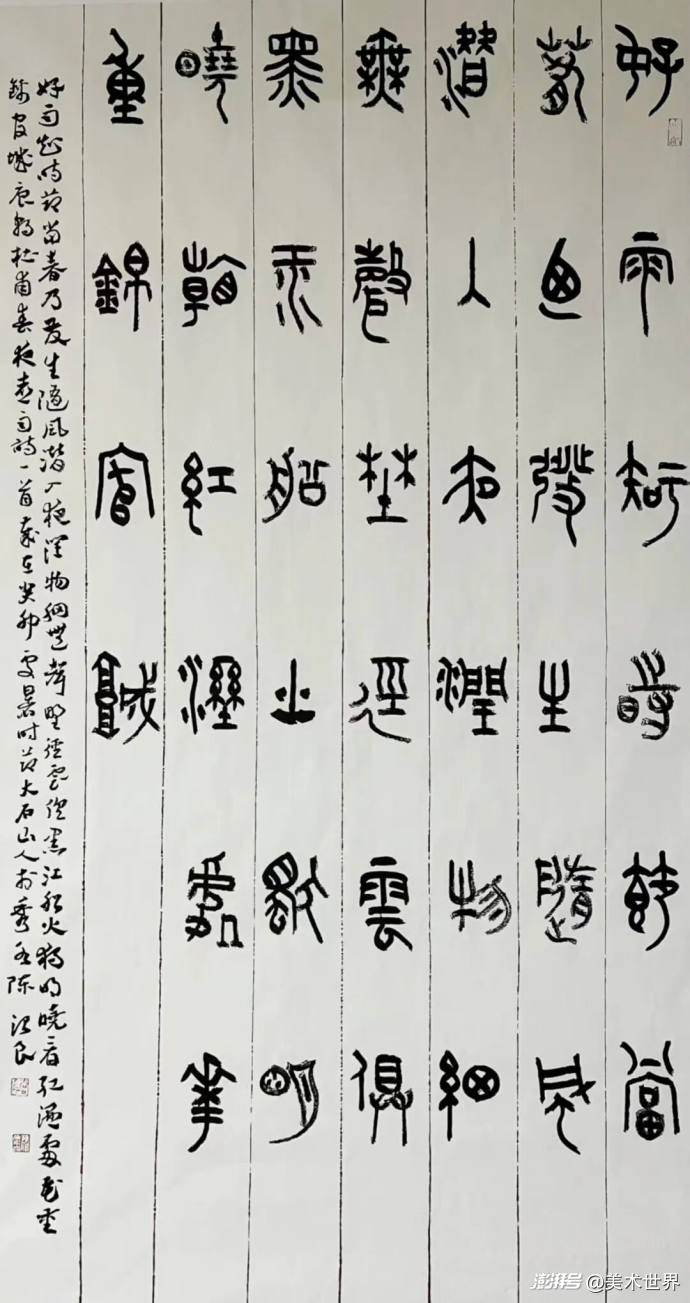 好雨知時節當
春乃發生隨風
潛入夜潤物細
無聲埜徑雲俱
黑江船火獨明
曉看紅溼處華
重錦官城
好雨知時節當春乃發生隨風潛入夜潤物細無聲野徑雲俱黑江船火獨明曉看紅濕處花重
錦官城唐杜甫春夜喜雨詩一首歲在癸卯處暑時節大石山人於秀陳良
澎湃号@美术世界